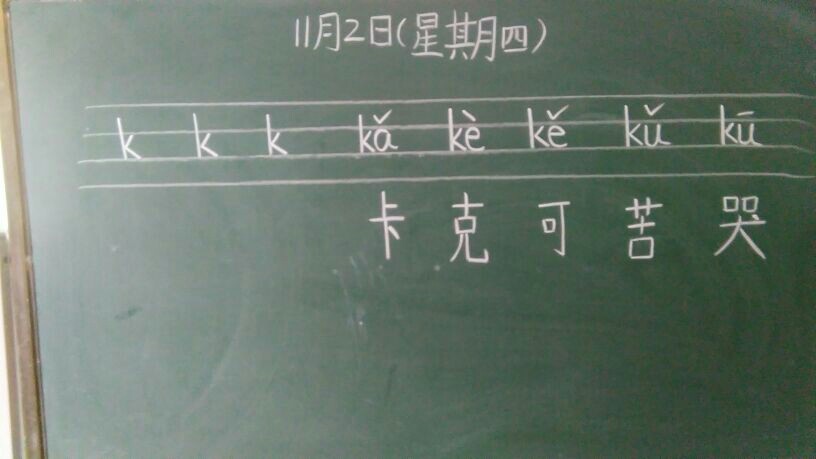 11月2日(星期四)
k k k kǎ kè kě kǔ kū
卡 克 可 苦 哭